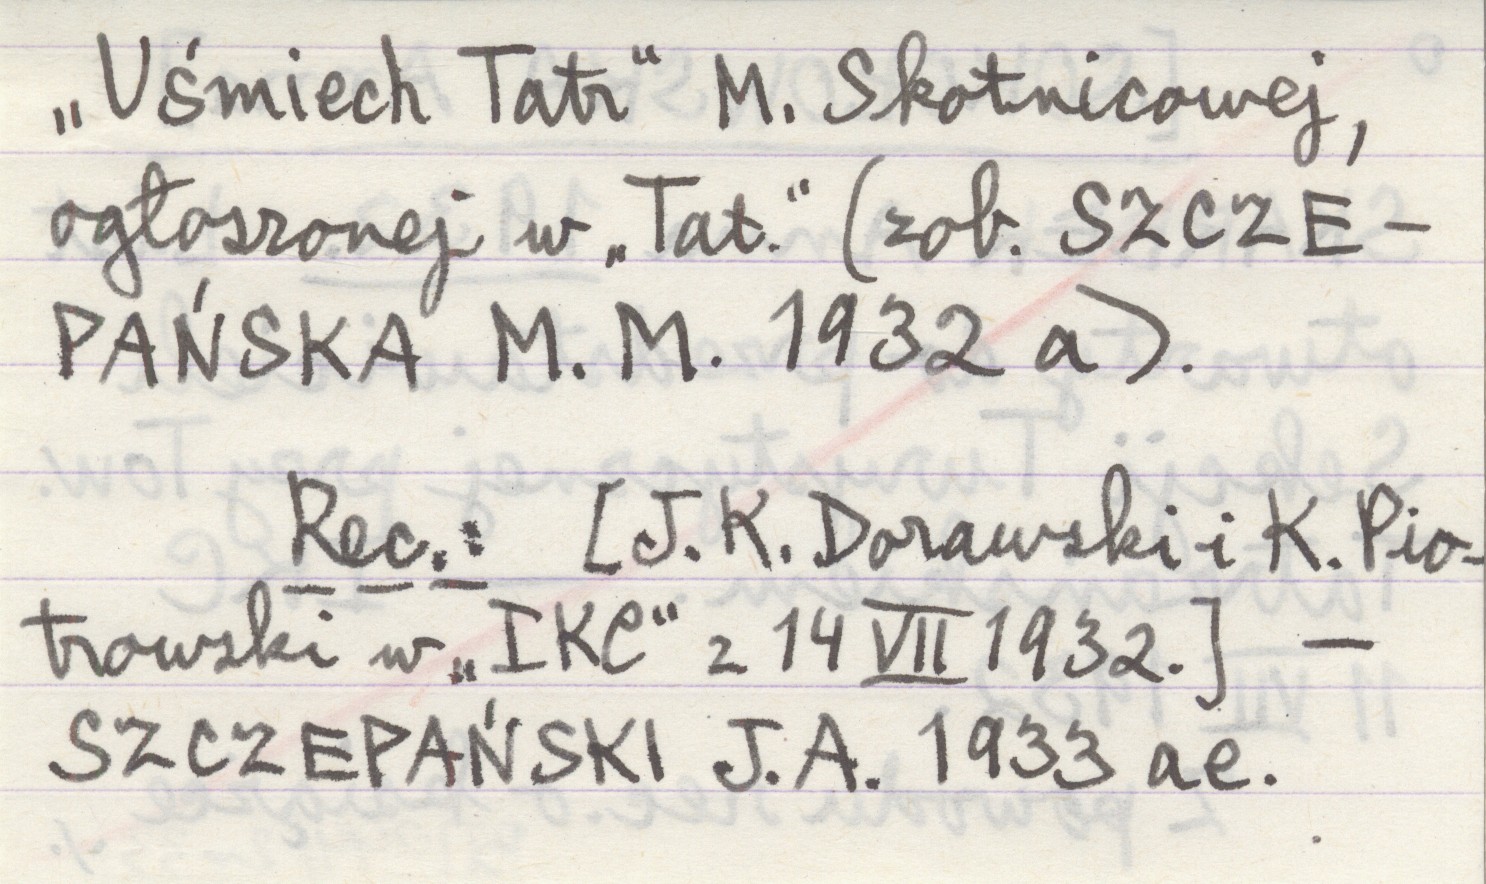 „Uśmiech Tatr" M. Skotnicowej,
ogłoszonej w „Tat." (zob. SZCZE-
PAŃSKA M. M. 1932 a).
Rec.: [J. K. Dorawski i K. Pio-
trowski w „IKC" z 14 VII 1932.] —
SZCZEPAŃSKI J. A. 1933 ae.